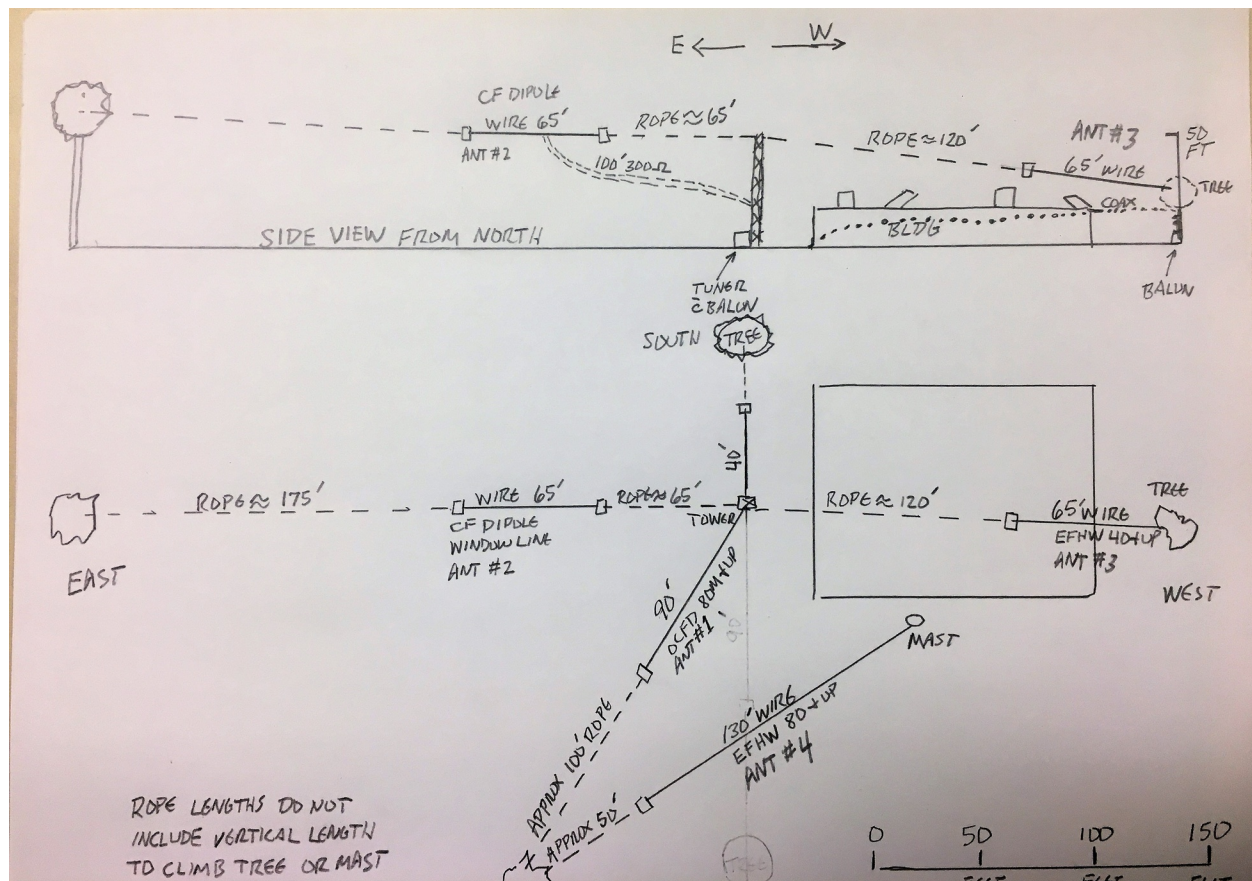 E W
CF DIPOLE
WIRE 65'
ROPE ≈ 65'
ANT #2
100' 300Ω
ROPE ≈ 120'
ANT #3
50
FT
65' WIRE
TREE
COAX
BLDG
SIDE VIEW FROM NORTH
TUNER
c̄ BALUN
BALUN
SOUTH
TREE
40'
ROPE ≈ 175'
WIRE 65'
ROPE ≈ 65'
CF DIPOLE
WINDOW LINE
ANT #2
TOWER
ROPE ≈ 120'
TREE
65' WIRE
EFHW 40+UP
ANT #3
EAST
WEST
90'
OCFD 80M+UP
ANT #1
90'
MAST
130' WIRE
EFHW 80+UP
ANT #4
APPROX 100' ROPE
APPROX 50'
TREE
ROPE LENGTHS DO NOT
INCLUDE VERTICAL LENGTH
TO CLIMB TREE OR MAST
0 50 100 150